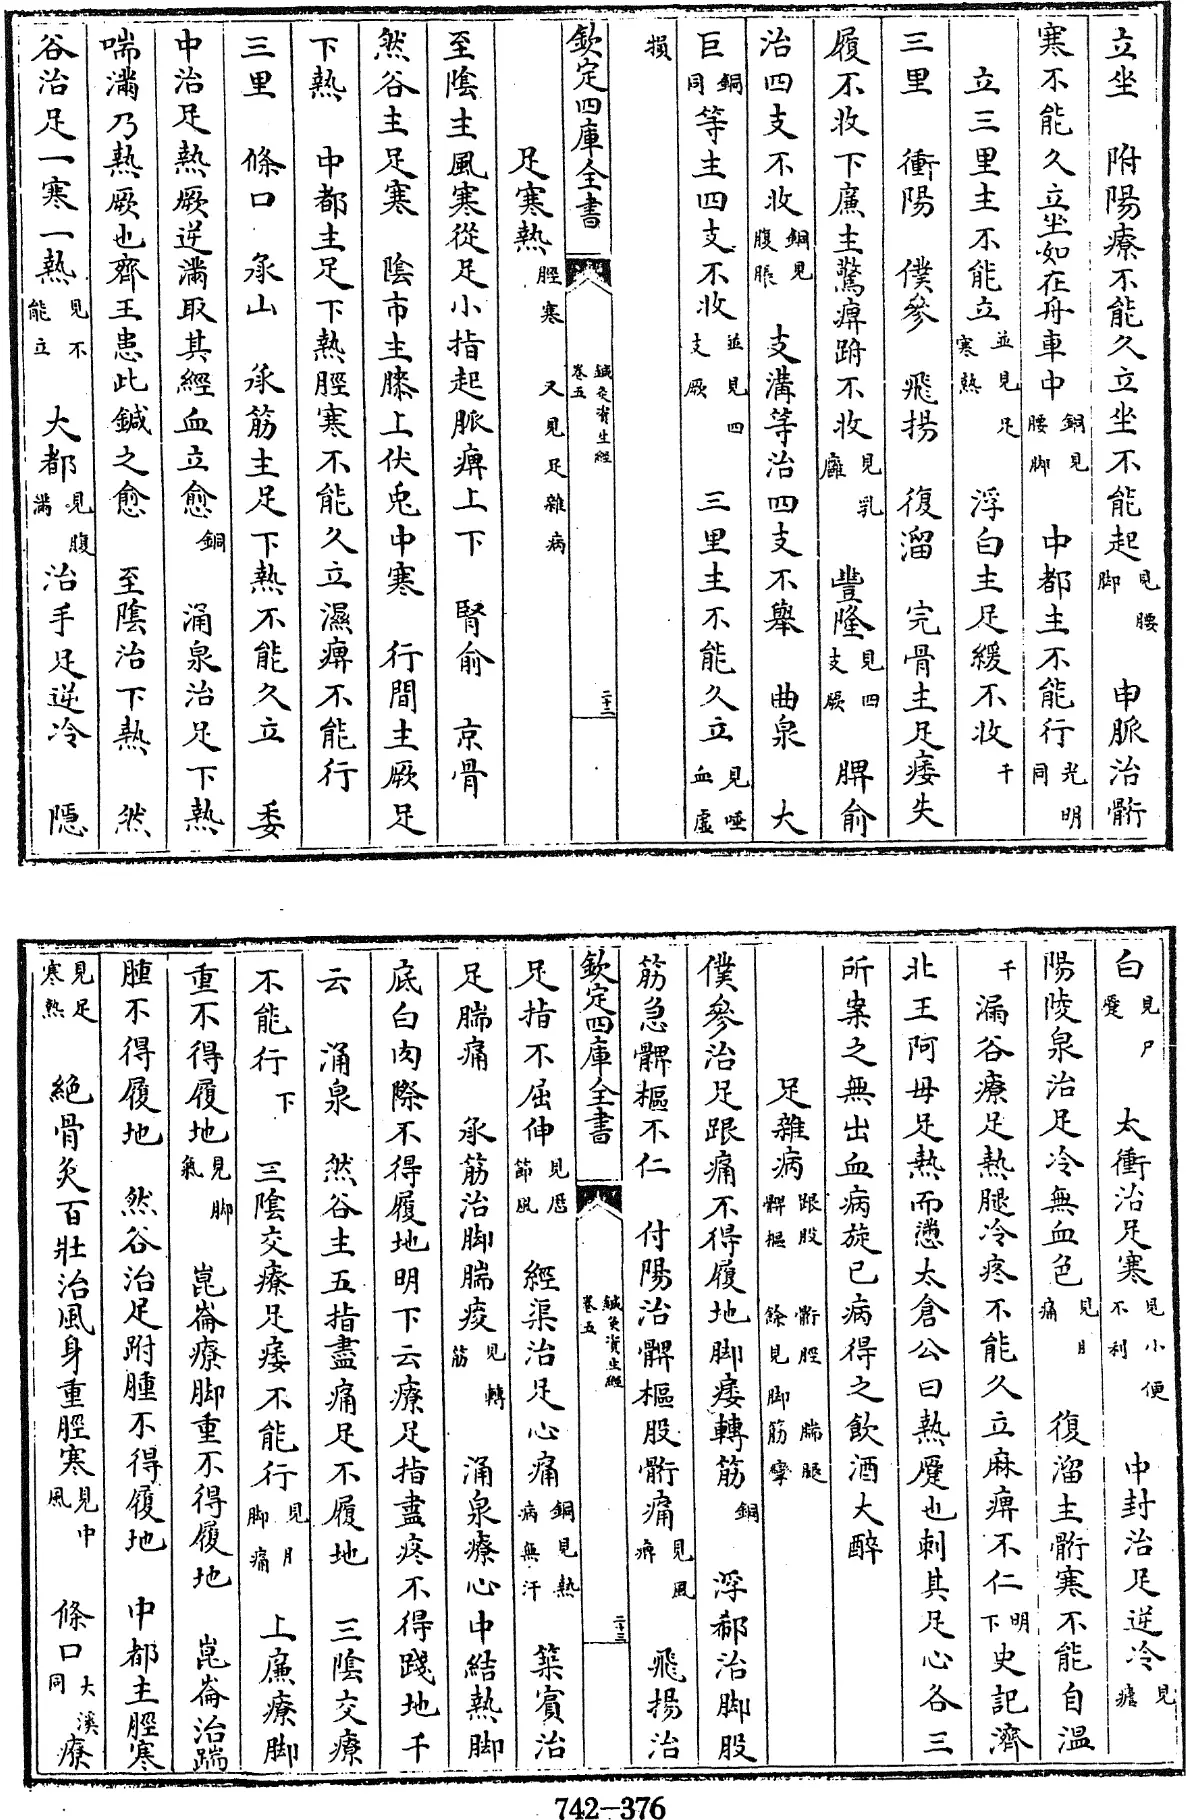 立坐　附陽療不能久立坐不能起見腰脚　申脈治䯒
寒不能久立坐如在舟車中銅見腰脚　中都主不能行光明同
立三里主不能立並見足寒熱　浮白主足緩不收千
三里　衝陽　僕參　飛揚　復溜　完骨主足痿失
履不收下廉主驚痺跗不收見乳癰　豐隆見四支厥　脾俞
治四支不收銅見腹脹　支溝等治四支不舉　曲泉　大
巨銅同等主四支不收並見四支厥　三里主不能久立見唾血虛
損
欽定四庫全書　鍼灸資生經卷五　二十二
足寒熱脛寒　又見足雜病
至陰主風寒從足小指起脈痺上下　腎俞　京骨
然谷主足寒　陰市主膝上伏兎中寒　行間主厥足
下熱　中都主足下熱脛寒不能久立濕痺不能行
三里　條口　承山　承筋主足下熱不能久立　委
中治足熱厥逆滿取其經血立愈銅　涌泉治足下熱
喘滿乃熱厥也齊王患此鍼之愈　至陰治下熱　然
谷治足一寒一熱見不能立　大都見腹滿治手足逆冷　隱
白見尸蹷　太衝治足寒見小便不利　中封治足逆冷見瘧
陽陵泉治足冷無血色見目痛　復溜主䯒寒不能自溫
千漏谷療足熱腿冷疼不能久立麻痺不仁明下史記濟
北王阿母足熱而懣太倉公曰熱蹷也刺其足心各三
所案之無出血病旋已病得之飲酒大醉
足雜病跟股　䯒脛　腨腿髀樞　餘見脚筋攣
僕參治足跟痛不得履地脚痿轉筋銅　浮郄治脚股
筋急髀樞不仁　付陽治髀樞股䯒痛見風痺　飛揚治
欽定四庫全書　鍼灸資生經卷五　二十三
足指不屈伸見歷節風　經渠治足心痛銅見熱病無汗　築賓治
足腨痛　承筋治脚腨痠見轉筋　涌泉療心中結熱脚
底白肉際不得履地明下云療足指盡疼不得踐地千
云　涌泉　然谷主五指盡痛足不履地　三陰交療
不能行下　三陰交療足痿不能行見月脚痛　上廉療脚
重不得履地見脚氣　崑崙療脚重不得履地　崑崙治踹
腫不得履地　然谷治足跗腫不得履地　中都主脛寒
見足寒熱　絶骨灸百壯治風身重脛寒見中風　條口大溪同療
742-376